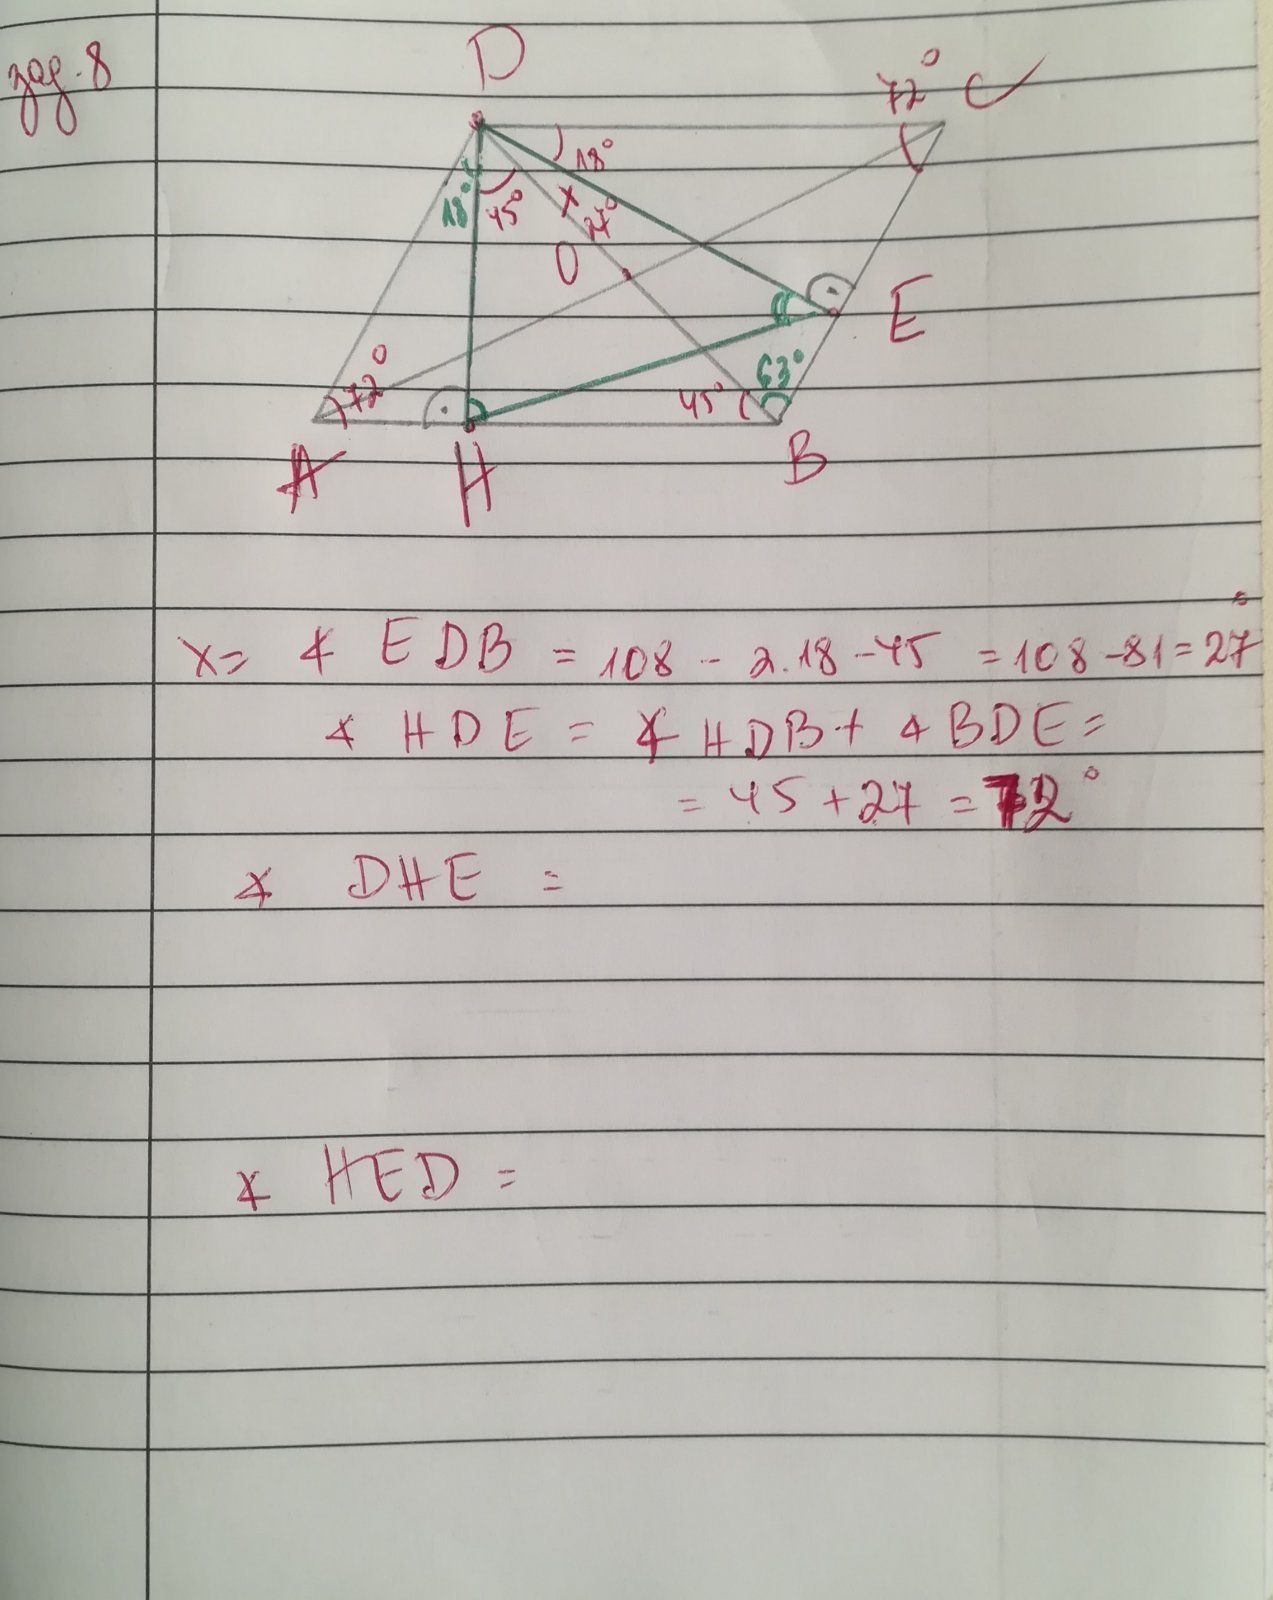 зад. 8
D
72° C
18°
18° 45° x 27°
O
E
72°
63°
45°
A H B
x = ∢ EDB = 108 - 2.18 - 45 = 108 - 81 = 27°
∢ HDE = ∢ HDB + ∢ BDE =
= 45 + 27 = 72°
∢ DHE =
∢ HED =